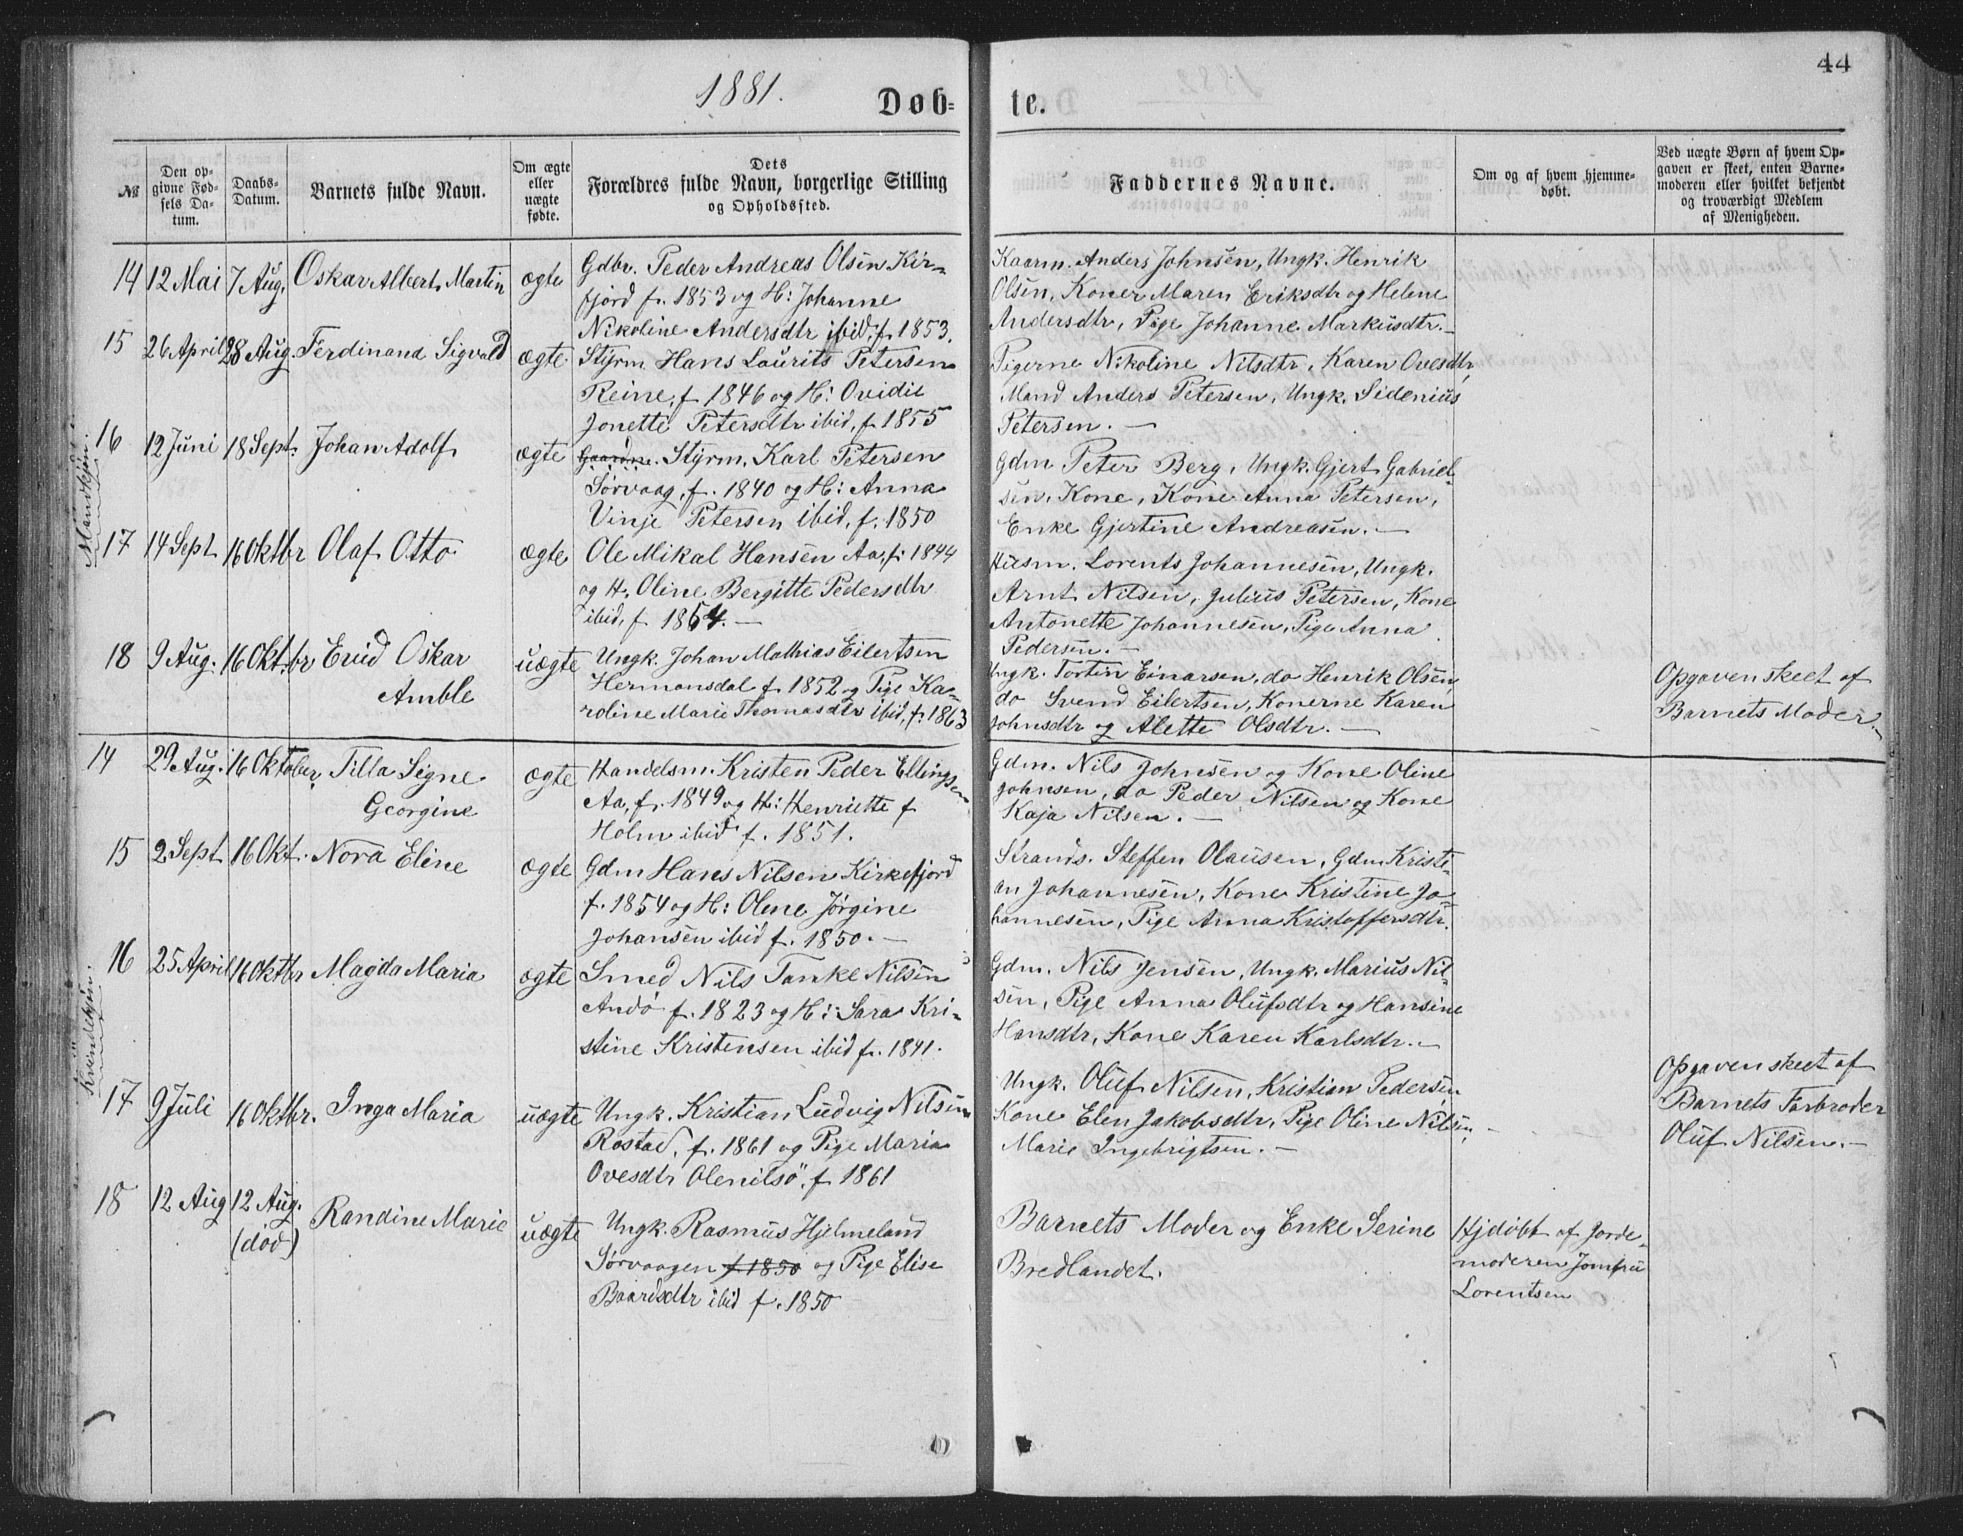 44
1881.
Døb-
te.
№
Den op-
givne Fød-
sels Da-
tum.
Daabs-
Datum.
Barnets fulde Navn.
Om ægte
eller
uægte
fødte.
Dets
Forældres fulde Navn, borgerlige Stilling
og Opholdssted.
Faddernes Navne.
Om og af hvem hjemme-
døbt.
Ved uægte Børn af hvem Op-
gaven er skeet, enten Barne-
moderen eller hvilket bekjendt
og troværdigt Medlem
af Menigheden.
Mandkjøn.
14 12 Mai 7 Aug. Oskar Albert Martin ægte
Gdbr. Peder Andreas Olsen Kir-
fjord f. 1853 og H: Johanne
Nikoline Andersdtr ibid, f. 1853.
Kaarm. Anders Johnsen, Ungk. Henrik
Olsen, Koner Maren Eriksdtr og Helene
Andersdtr, Pige Johanne Markusdtr.-
15 26 April 28 Aug. Ferdinand Sigvald ægte
Styrm Hans Laurits Petersen
Reine, f 1846 og H: Ovidie
Jonette Petersdtr ibid, f 1855
Pigerne Nikoline Nilsdtr, Karen Ovesdtr,
Mand Anders Petersen, Ungk. Sidenius
Petersen. -
16 12 Juni 18 Sept. Johan Adolf ægte
Styrm. Karl Petersen
Sørvaag, f. 1840 og H: Anna
Vinje Petersen ibid, f. 1850
Gdm Peter Berg, Ungk. Gjert Gabriel-
sen, Kone, Kone Anna Petersen,
Enke Gjertine Andreasen. -
17 14 Sept 16 Oktbr Olaf Otto ægte
Ole Mikal Hansen Aa, f. 1844
og H. Oline Bergitte Pedersdtr
ibid, f 1854. -
Husm. Lorents Johannesen, Ungk.
Arnt Nilsen, Julius Petersen, Kone
Antonette Johannesen, Pige Anna
Pedersen. -
18 9 Aug. 16 Oktbr Enid Oskar
Amble
uægte
Ungk. Johan Mathias Eilertsen
Hermansdal f 1852 og Pige Ka-
roline Marie Thomasdtr ibid, f. 1863
Ungk. Tortin Einarsen, do Henrik Olsen,
do Svend Eilertsen, Konerne Karen
Johnsdtr og Alette Olsdtr. -
Opgaven skeet af
Barnets Moder.-
Kvindekjøn.
14 29 Aug. 16 Oktober, Tilla Signe
Georgine
ægte
Handelsm. Kristen Peder Ellingsen
Aa, f. 1849 og H: Henriette f
Holm ibid f. 1851.
Gdm. Nils Johnsen og Kone Oline
Johnsen, do Peder Nilsen og Kone
Kaja Nilsen. -
15 2 Sept 16 Okt. Nora Eline ægte
Gdm Hans Nilsen Kirkefjord
f. 1854 og H: Olene Jørgine
Johansen ibid f. 1850. -
Strands. Steffen Olausen, Gdm Kristi-
an Johannesen, Kone Kristine Jo-
hannesen, Pige Anna Kristoffersdtr.
16 25 April 16 Oktbr Magda Maria ægte
Smed Nils Tanke Nilsen
Andø f. 1823 og H: Sara Kri-
stine Kristensen ibid f. 1841.
Gdm. Nils Jensen, Ungk. Marius Nil-
sen, Pige Anna Olufsdtr og Hansine
Hansdtr, Kone Karen Karlsdtr. -
17 9 Juli 16 Oktbr. Inga Maria uægte
Ungk. Kristian Ludvig Nilsen
Rostad, f. 1861 og Pige Maria
Ovesdtr Olenilsö, f 1861
Ungk. Oluf Nilsen, Kristian Pedersen
Kone Elen Jakobsdtr, Pige Oline Nilsen,
Marie Ingebrigtsen. -
Opgaven skeet af
Barnets Farbroder
Oluf Nilsen. -
18 12 Aug 12 Aug.
(død)
Randine Marie uægte
Ungk. Rasmus Hjelmeland
Sørvaagen f 1850 og Pige Elise
Baardsdtr ibid f. 1850
Barnets Moder og Enke Serine
Bredlandet.
Hjdøbt af Jorde-
moderen Jomfru
Lorentsen